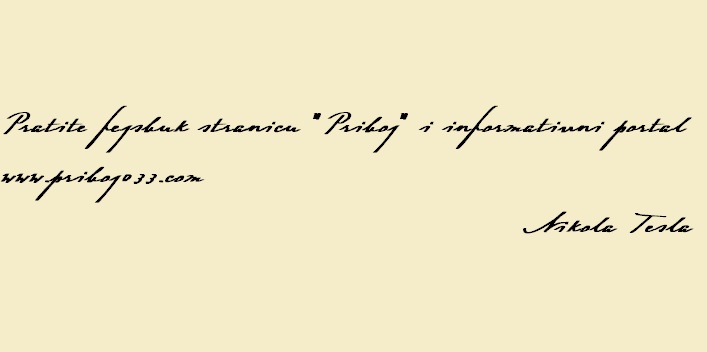 Pratite fejsbuk stranicu "Priboj" i informativni portal
www.priboj033.com
Nikola Tesla